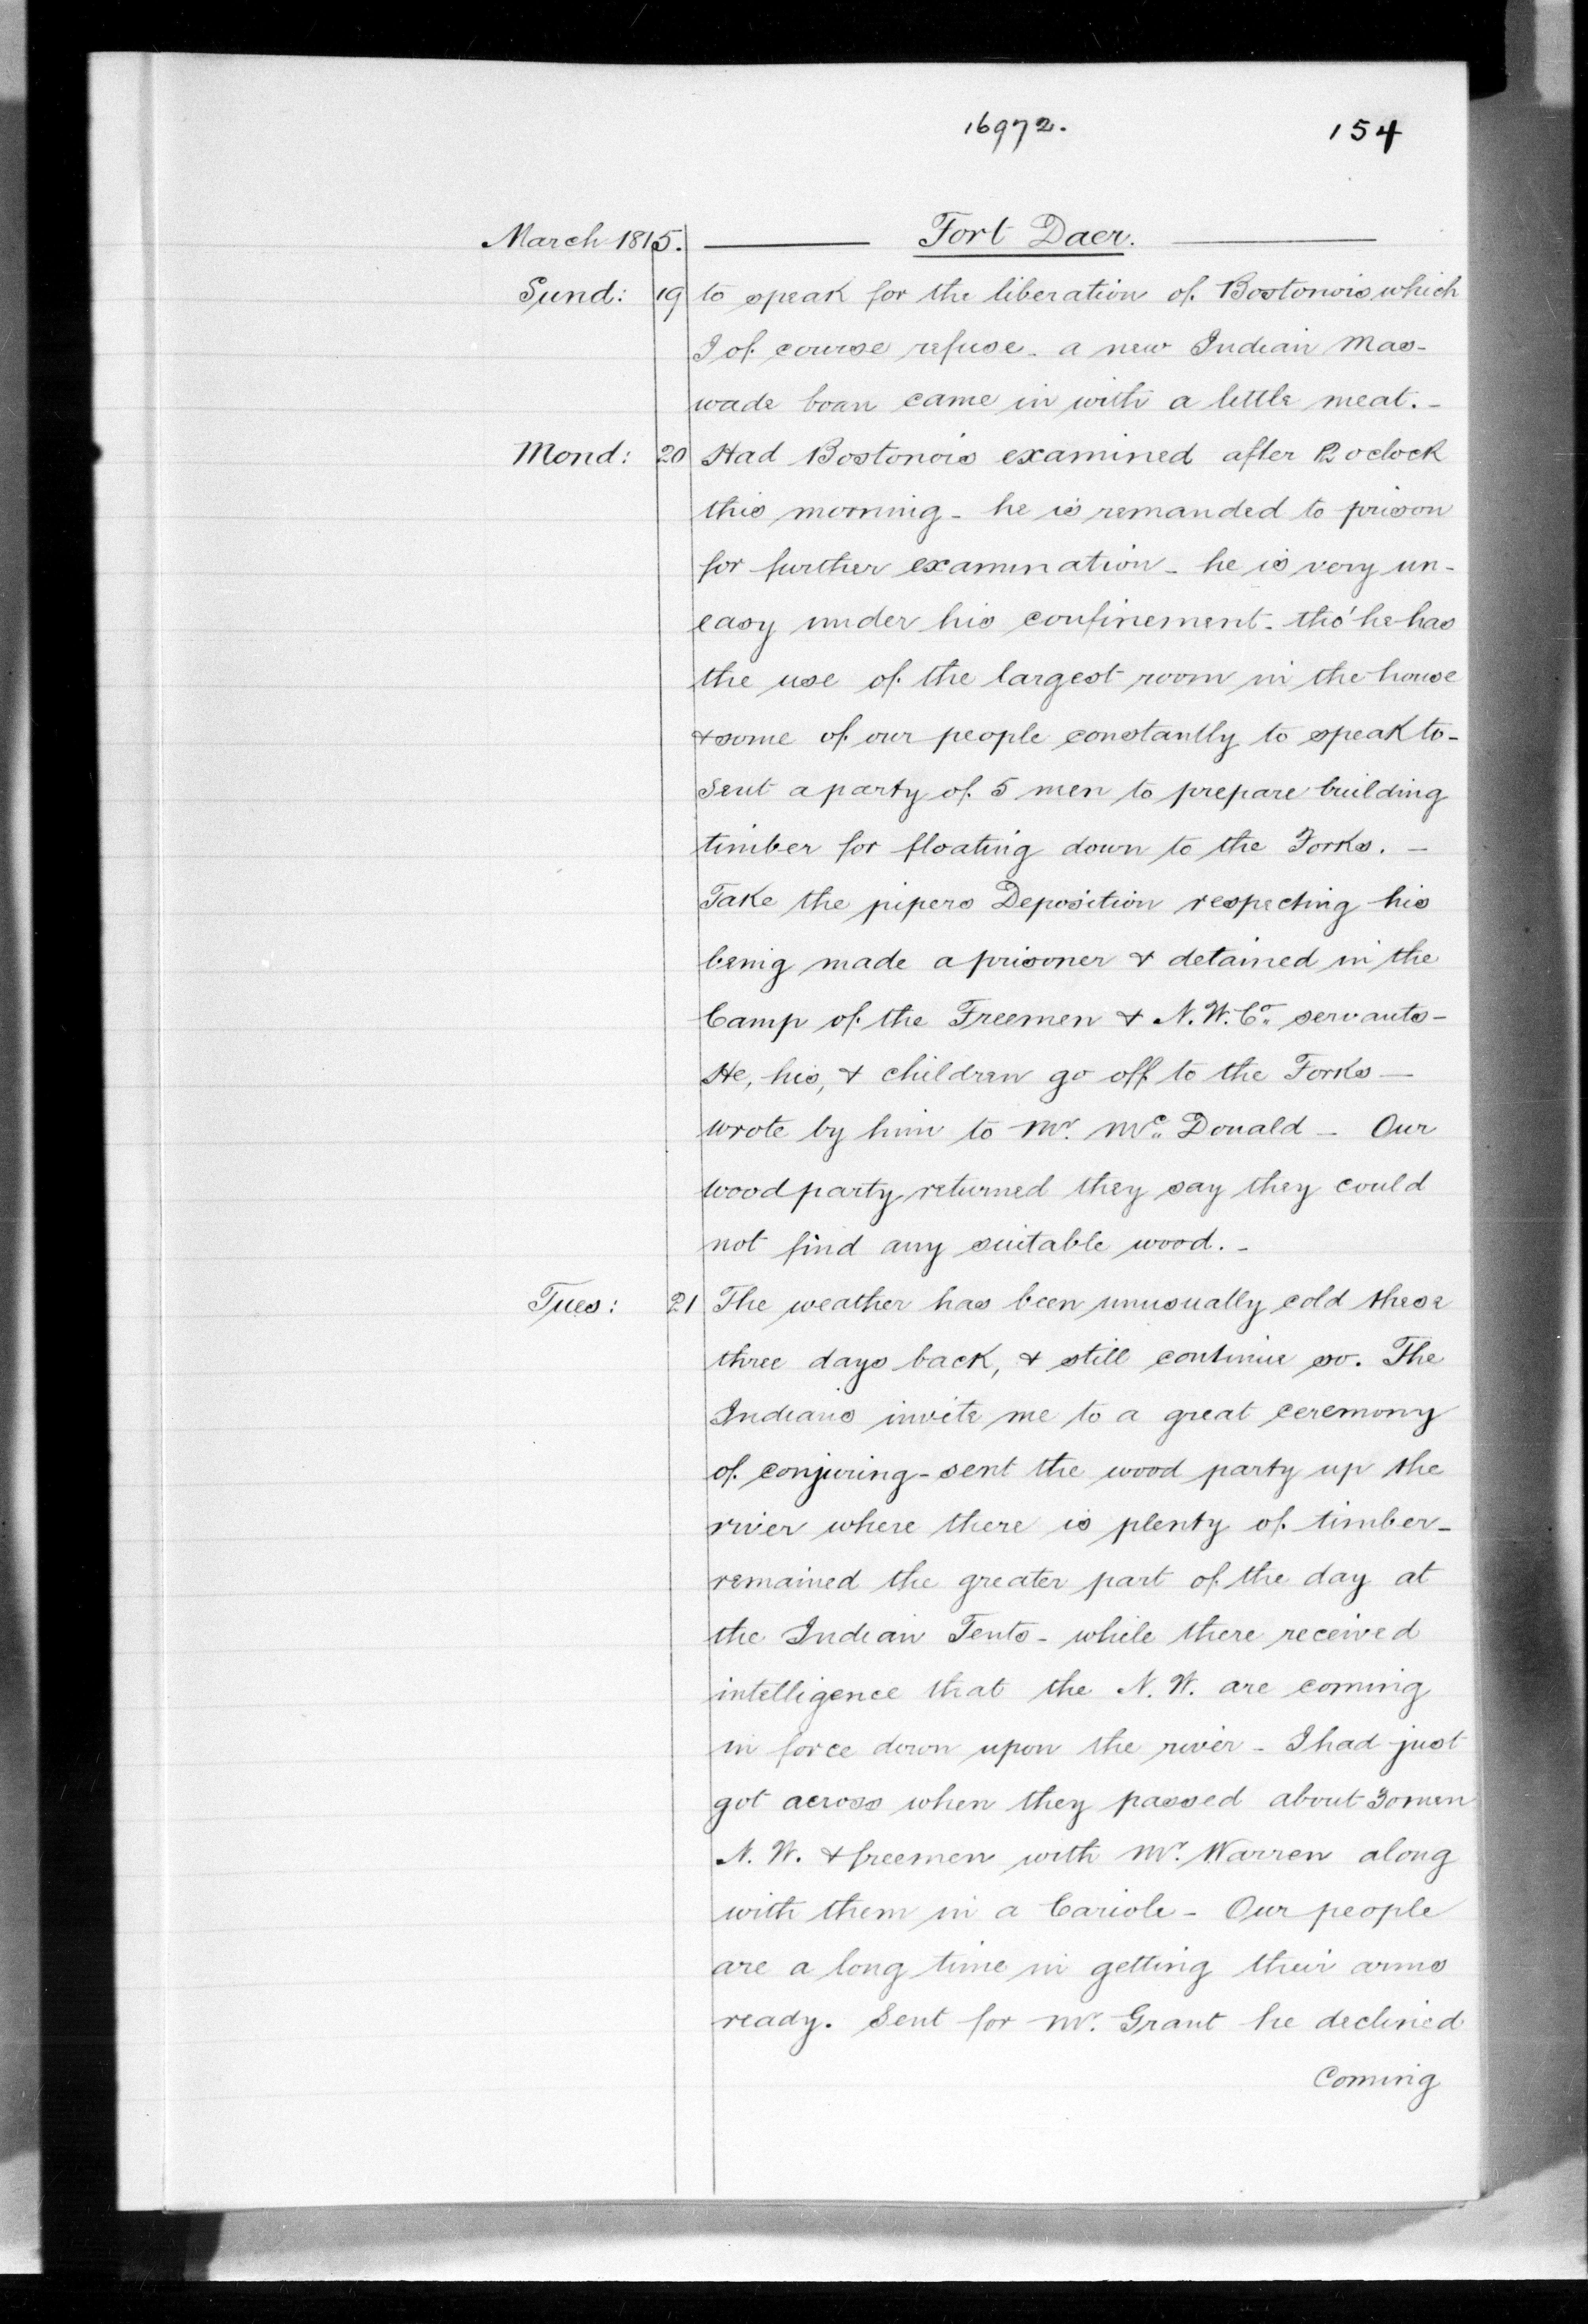 16972. 154
March 1815. Fort Daer.
Sund: 19 to speak for the liberation of Bostonois which
I of course refuse - a new Indian Mas-
wade boan came in with a little meat. -
Mond: 20 Had Bostonois examined after 12 oclock
this morning - he is remanded to prison
for further examination - he is very un-
easy under his confinement - tho' he has
the use of the largest room in the house
& some of our people constantly to speak to -
Sent a party of 5 men to prepare building
timber for floating down to the Forks. -
Take the pipers Deposition respecting his
being made a prisoner & detained in the
Camp of the Freemen & N. W. Co. servants -
He, his, & children go off to the Forks -
wrote by him to Mr. Mc. Donald - Our
wood party returned they say they could
not find any suitable wood. -
Tues: 21 The weather has been unusually cold these
three days back, & still continue so. The
Indians invite me to a great ceremony
of conjuring - sent the wood party up the
river where there is plenty of timber -
remained the greater part of the day at
the Indian Tents - while there received
intelligence that the N. W. are coming
in force down upon the river - I had just
got across when they passed about 30 men
N. W. & freemen with Mr. Warren along
with them in a Cariole - Our people
are a long time in getting their arms
ready. Sent for Mr. Grant he declined
Coming